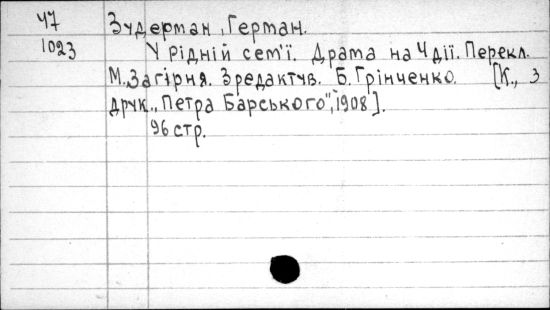 Ч7 Зудерман, Герман.
1023 У рідній сем'ї. Драма на 4 дії. Перекл.
М. Загірня. Зредактув. Б. Грінченко. [К., З
друк. „Петра Барського", 1908].
96 стр.